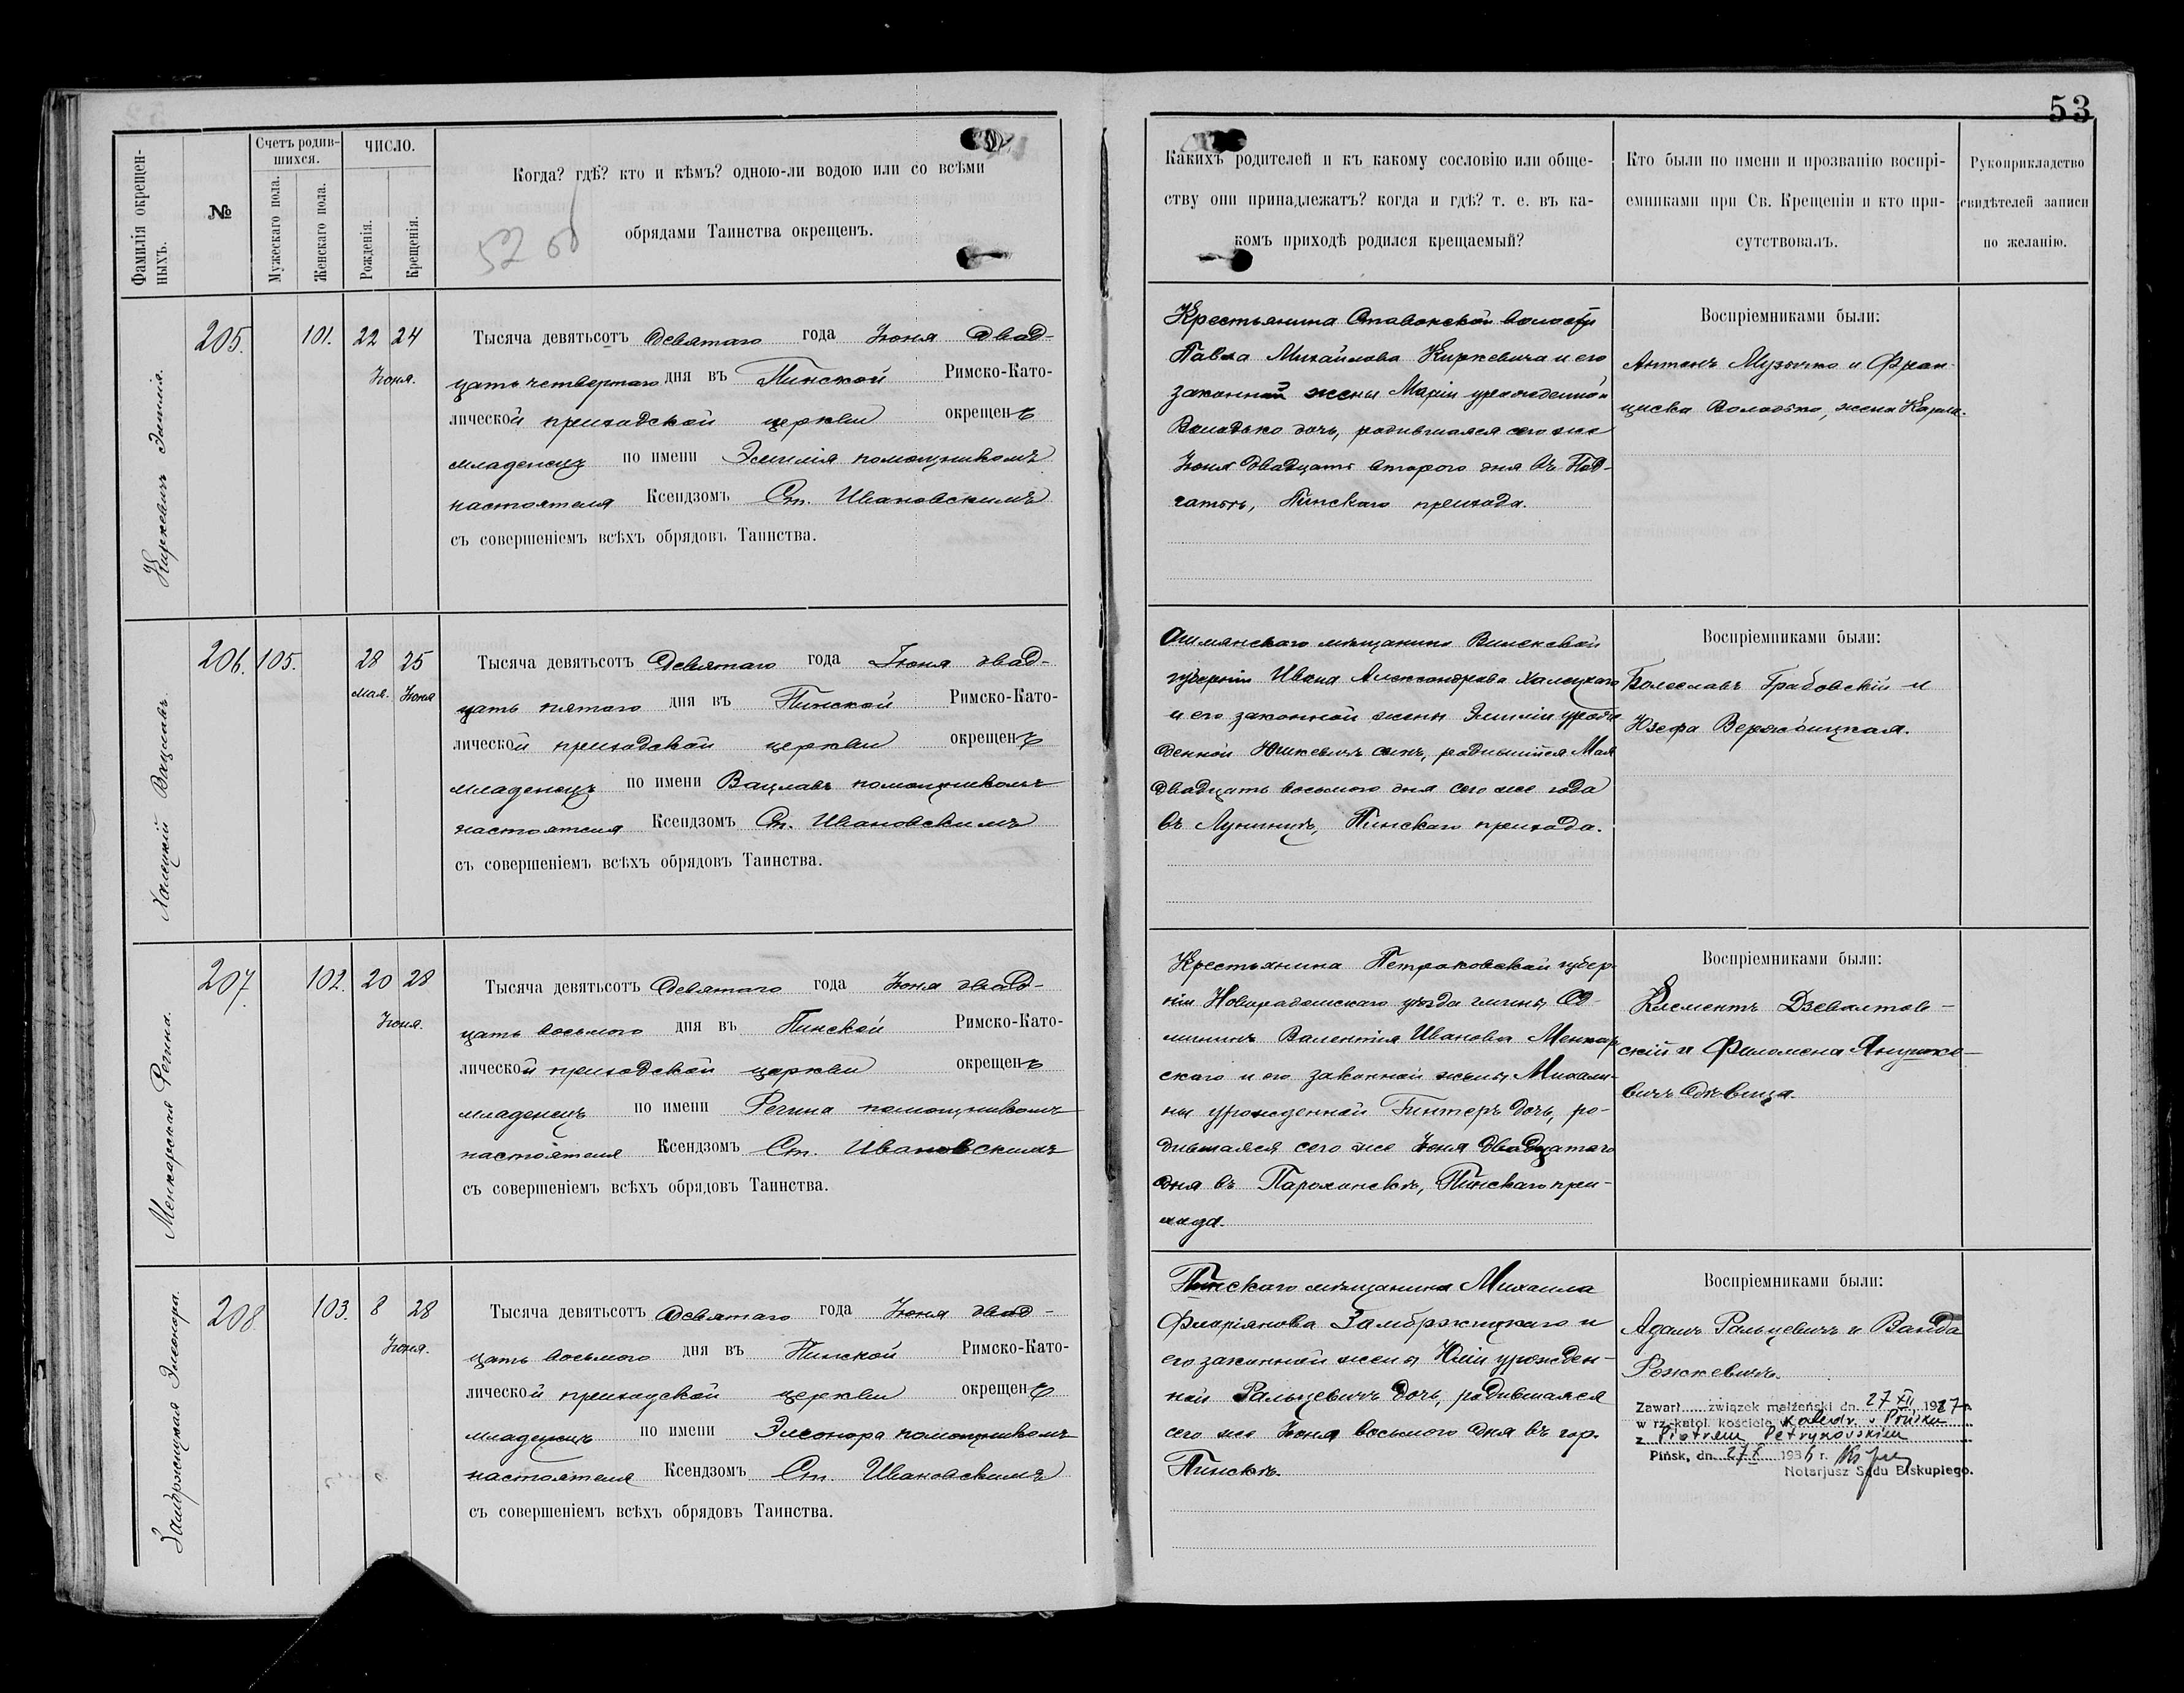 53
Фамилія окрещен-
ныхъ.
№
Счетъ родив-
шихся.
Мужескаго пола.
Женскаго пола.
ЧИСЛО.
Рожденія.
Крещенія.
Когда? гдѣ? кто и кѣмъ? одною-ли водою или со всѣми
обрядами Таинства окрещенъ.
Какихъ родителей и къ какому сословію или обще-
ству они принадлежатъ? когда и гдѣ? т. е. въ ка-
комъ приходѣ родился крещаемый?
Кто были по имени и прозванію воспрі-
емниками при Св. Крещеніи и кто при-
сутствовалъ.
Рукоприкладство
свидѣтелей записи
по желанію.
52 об
Киркевичъ Эмилія.
205.
101.
22 24
Іюня.
Тысяча девятьсотъ девятаго года Іюня двад-
цать четвертаго дня въ Пинской Римско-Като-
лической приходской церкви окрещенъ
младенецъ по имени Эмилія помощникомъ
настоятеля Ксендзомъ Ст. Ивановскимъ
съ совершеніемъ всѣхъ обрядовъ Таинства.
Крестьянина Ставокской волости
Павла Михайлова Киркевича и его
законной жены Маріи урожденной
Володько дочь, родившаяся сего же
Іюня двадцать второго дня въ Под-
гатьѣ, Пинскаго прихода.
Воспріемниками были:
Антонъ Музычко и Фран-
циска Володько, жена Карла.
Халецкій Вацлавъ.
206.
105.
28 25
Мая. Іюня
Тысяча девятьсотъ девятаго года Іюня двад-
цать пятаго дня въ Пинской Римско-Като-
лической приходской церкви окрещенъ
младенецъ по имени Вацлавъ помощникомъ
настоятеля Ксендзомъ Ст. Ивановскимъ
съ совершеніемъ всѣхъ обрядовъ Таинства.
Ошмянскаго мѣщанина Виленской
губерніи Ивана Александрова Халецкаго
и его законной жены Эмиліи урож-
денной Юшкевичъ сынъ, родившійся Мая
двадцать восьмого дня сего же года
въ Лунинцѣ, Пинскаго прихода.
Воспріемниками были:
Болеславъ Грабовскій и
Юзефа Вержбицкая.
Менкарская Регина.
207.
102.
20 28
Іюня.
Тысяча девятьсотъ девятаго года Іюня двад-
цать восьмого дня въ Пинской Римско-Като-
лической приходской церкви окрещенъ
младенецъ по имени Регина помощникомъ
настоятеля Ксендзомъ Ст. Ивановскимъ
съ совершеніемъ всѣхъ обрядовъ Таинства.
Крестьянина Петроковской губер-
ніи Новорадомскаго уѣзда гмины
Валентія Иванова Менкар-
скаго и его законной жены Михали-
ны урожденной Гинтеръ дочь, ро-
дившаяся сего же Іюня двадцатаго
дня въ Парохонскѣ, Пинскаго при-
хода.
Воспріемниками были:
Клементъ Дзевялтов-
скій и Филомена Янушке-
вичъ дѣвица.
Замбржицкая Элеонора.
208.
103.
8 28
Іюня.
Тысяча девятьсотъ девятаго года Іюня двад-
цать восьмого дня въ Пинской Римско-Като-
лической приходской церкви окрещенъ
младенецъ по имени Элеонора помощникомъ
настоятеля Ксендзомъ Ст. Ивановскимъ
съ совершеніемъ всѣхъ обрядовъ Таинства.
Пинскаго мѣщанина Михаила
Флоріянова Замбржицкаго и
его законной жены Юліи урожден-
ной Ральцевичъ дочь, родившаяся
сего же Іюня восьмого дня въ гор.
Пинскѣ.
Воспріемниками были:
Адамъ Ральцевичъ и Ванда
Рожкевичъ.
Zawarł związek małżeński dn. 27 XII 1927 r.
w rz.-katol. kościele w Katedr. w Pińsku
z Piotrem Petrykowskim
Pińsk, dn. 27 X 1936 r.
Notarjusz Sądu Biskupiego.